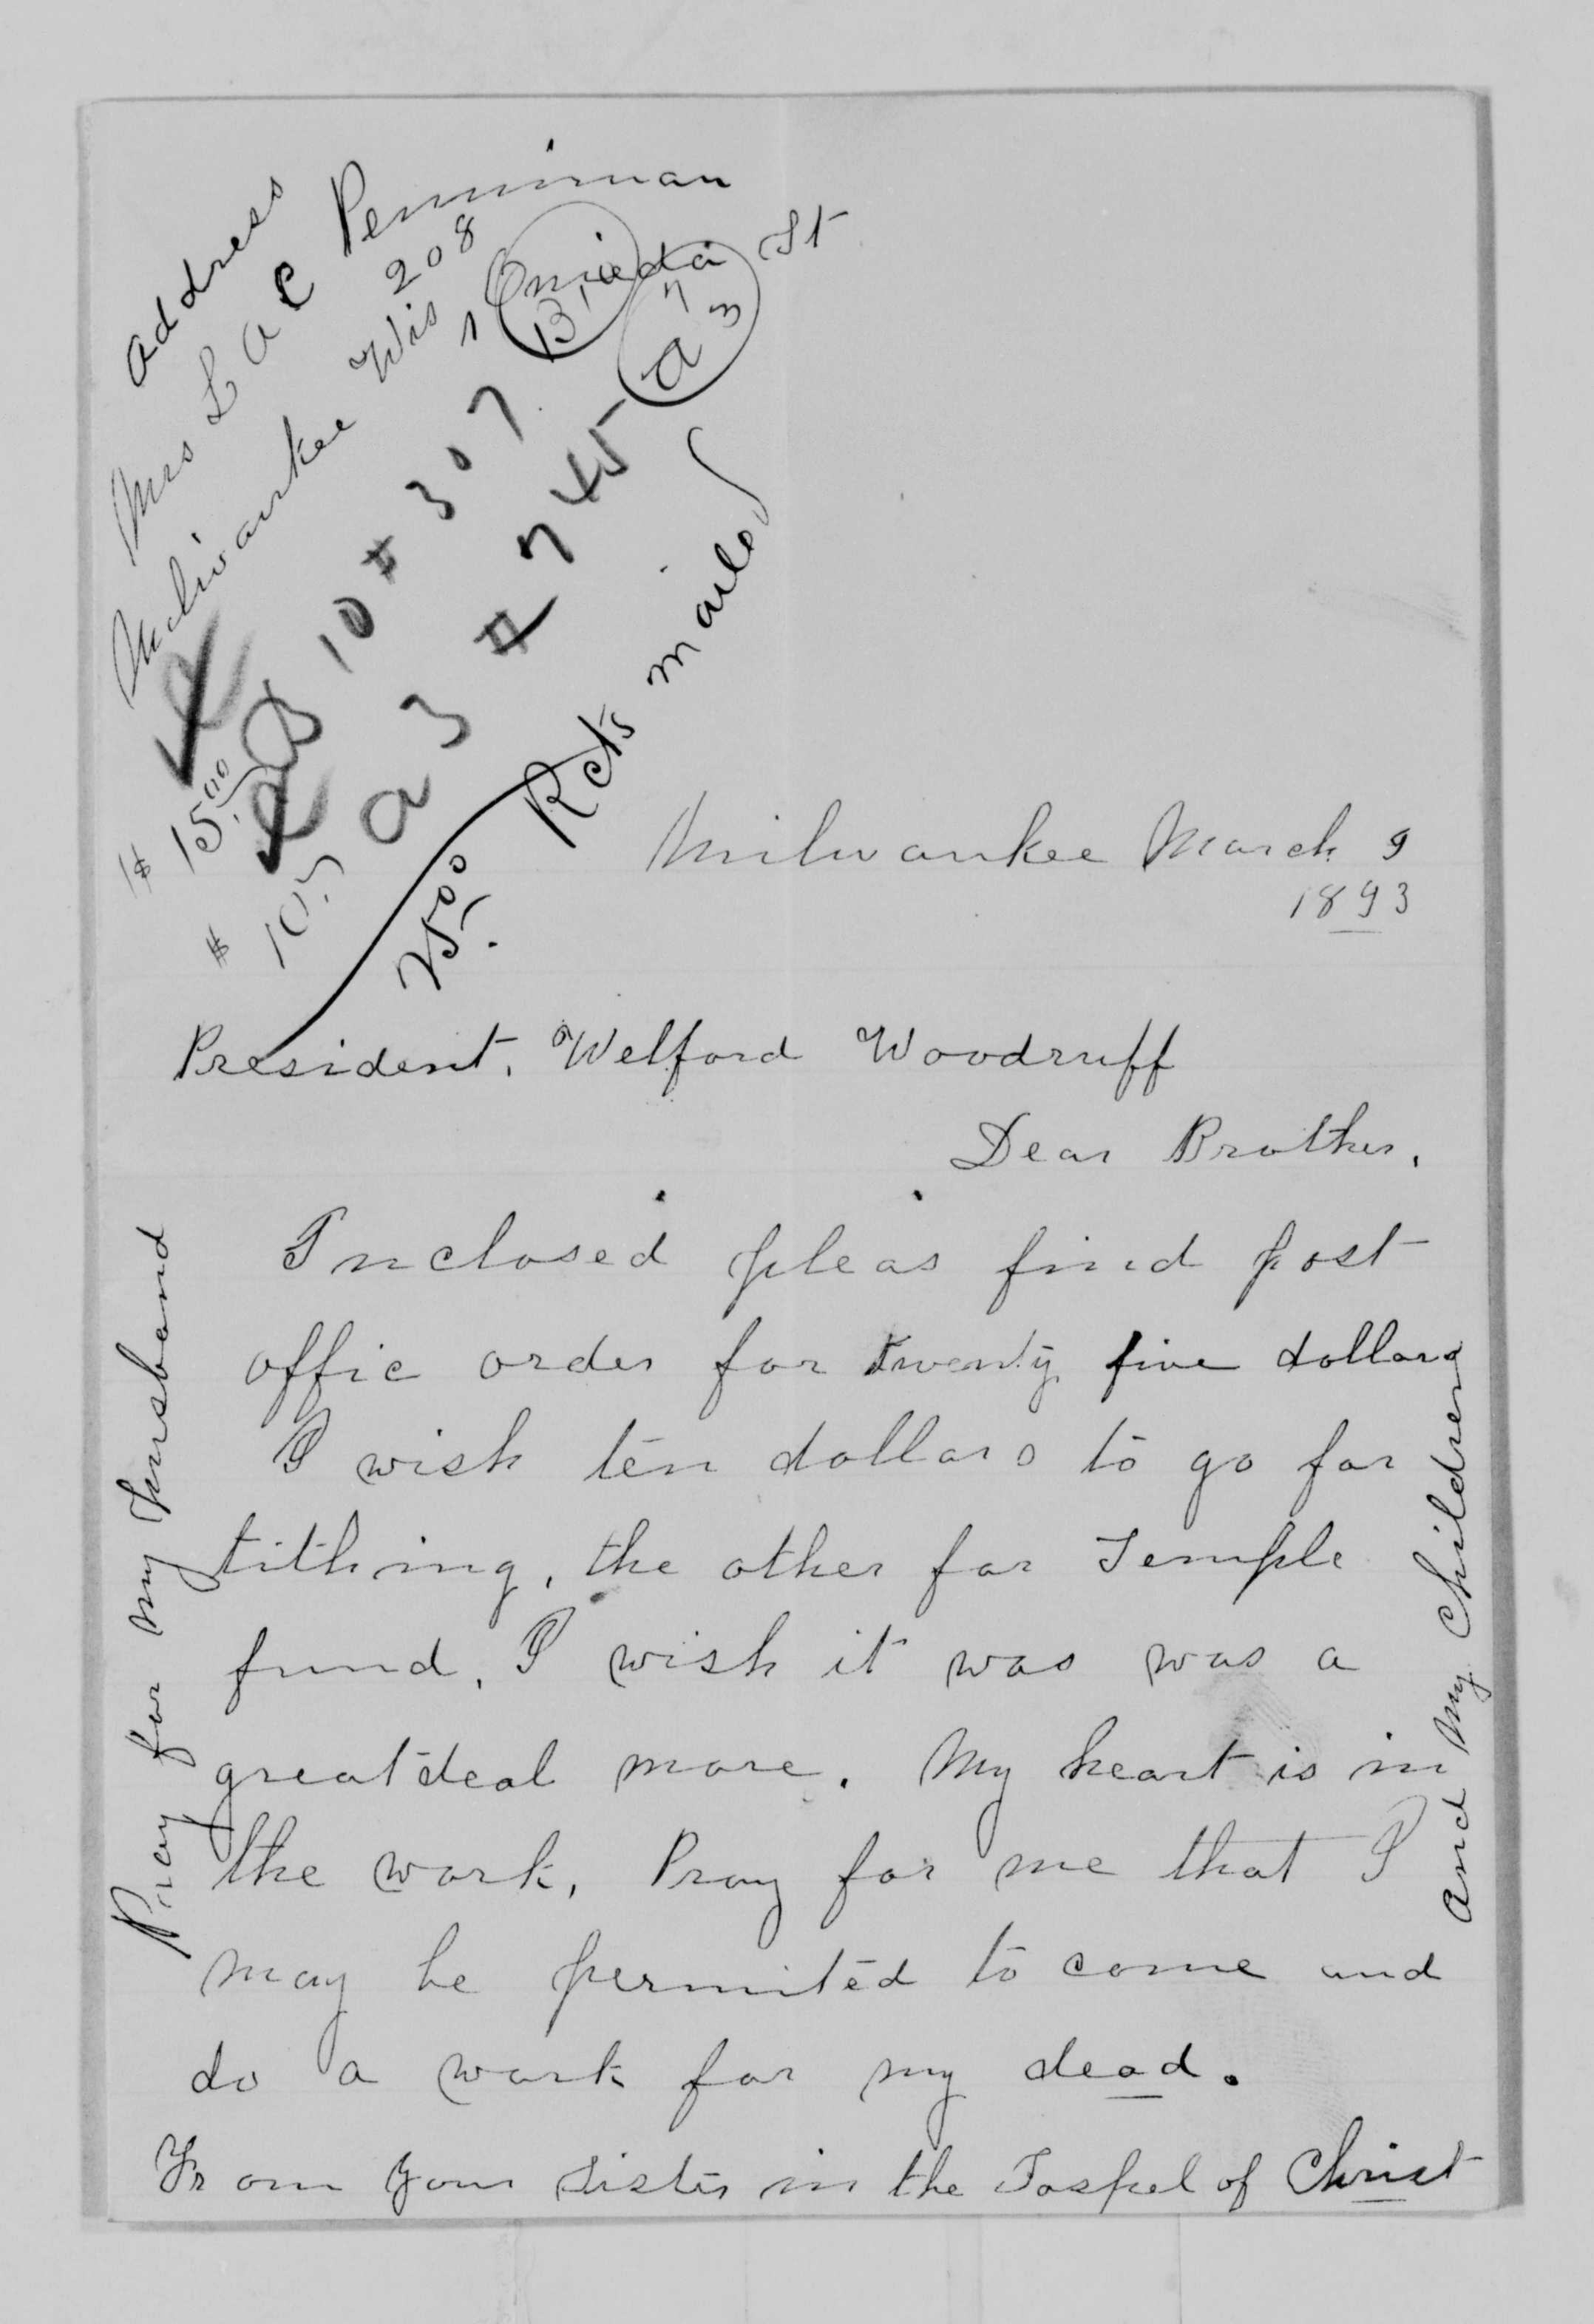 Address
Mrs L A C Penniman
208 Onieda St
Milwaukee Wis
10 # 307
a 3 # 745
$ 15.00
$ 10.
25.00 Rcts mailed
Milwaukee March 9
1893
President. Welford Woodruff
Dear Brother.
Inclosed pleas find post
offic order for twenty five dollars
I wish ten dollars to go for
tithing, the other for Temple
fund. I wish it was was a
great deal more. My heart is in
the work, Pray for me that I
may be permited to come and
do a work for my dead.
From your sister in the Gospel of Christ
Pray for my husband
And My Children